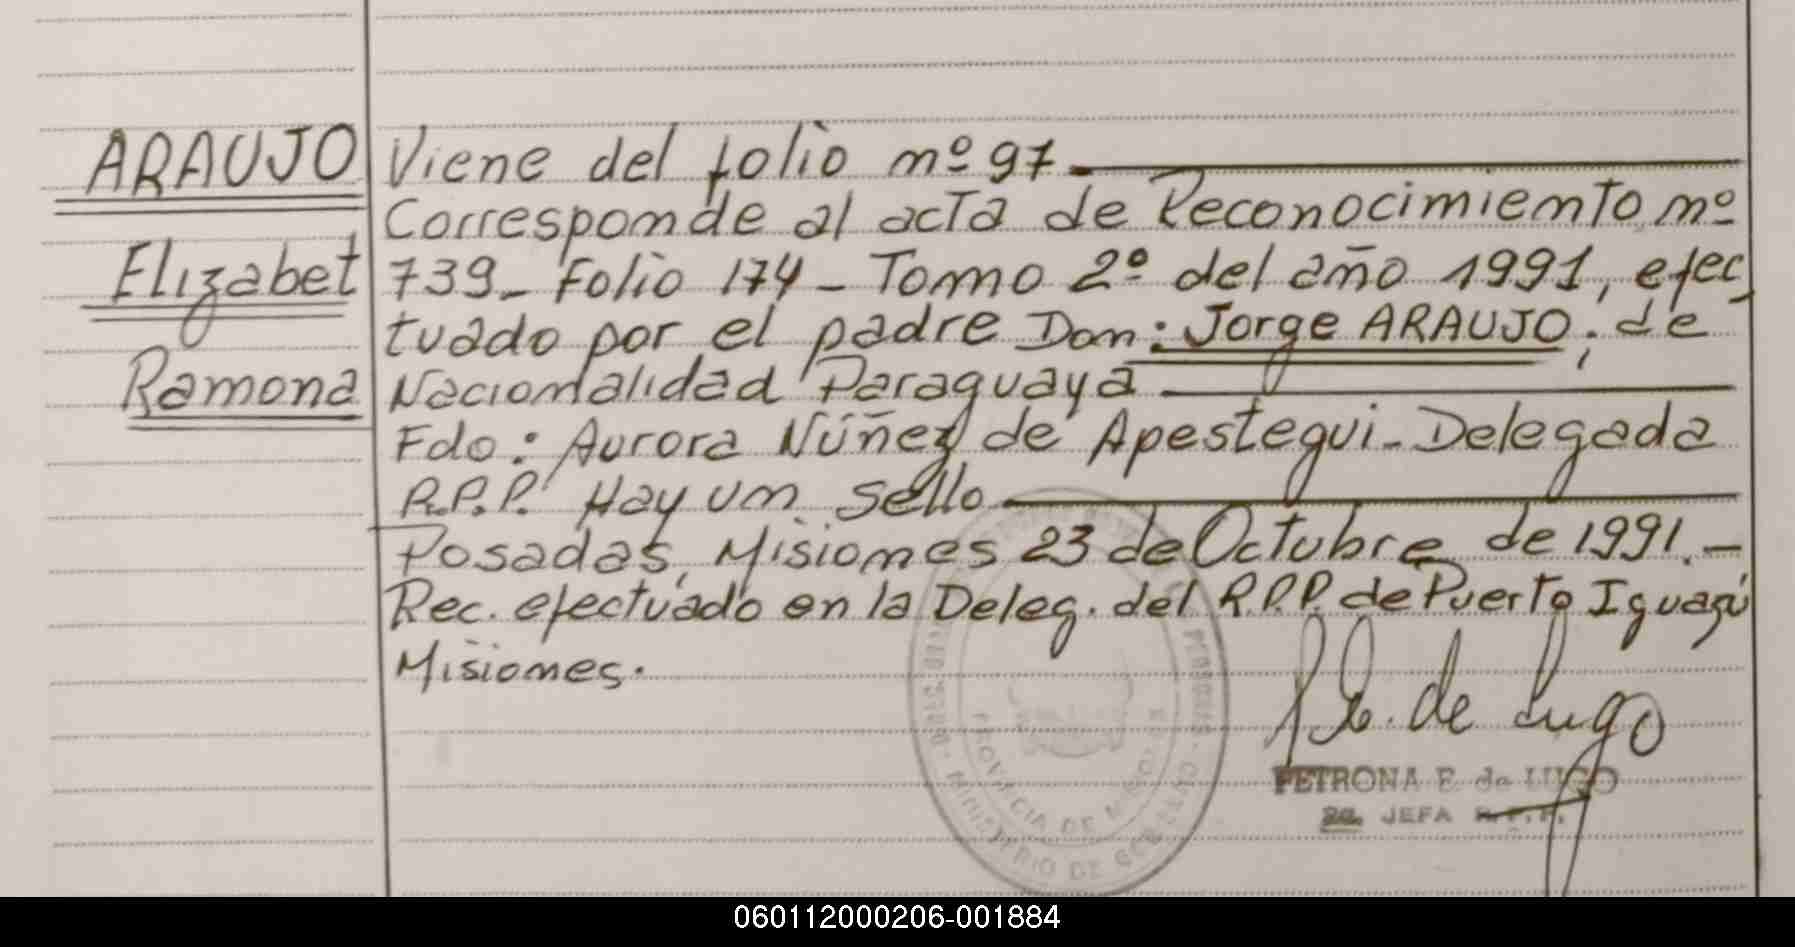 ARAUJO
Elizabet
Ramona
Viene del folio nº 97
Corresponde al acta de Reconocimiento nº
739_ Folio 174 _ Tomo 2º del año 1991, efec
tuado por el padre Don: Jorge ARAUJO; de
Nacionalidad Paraguaya
Fdo: Aurora Núñez de Apestegui_ Delegada
R.P.P. Hay un sello
Posadas, Misiones 23 de Octubre de 1991.-
Rec. efectuado en la Deleg. del R.P.P. de Puerto Iguazú
Misiones.
P E. de Lugo
PETRONA E de LUGO
2a. JEFA R.P.P.
PROVINCIA DE MISIONES
MINISTERIO DE GOBIERNO
060112000206-001884